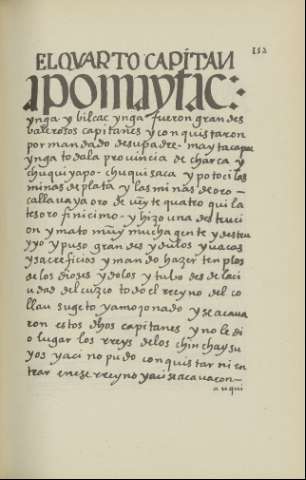 152
EL QVARTO CAPÍTAN
apomaytac:
ynga · y bilcac ynga fueron grandes
balerosos capitanes y conquistaron
por mandado de su padre - mayta capac
ynga toda la prouincia de charca · y
chuquiyapo · chuquisaca y potoci las
minas de plata y las minas de oro -
callauaya oro de ueynte quatro quila
tesoro finicimo - y hizo una destruci
on y mato muy mucha gente y destru
yyo y puso grandes ydulos y uacas
y sacreficios y mando hazer tenplos
de los dioses ydolos y tubo desde la ci
udad del cuzco todo el rreyno del co
llau sugeto y amojonado y se acaua
ron estos dhos capitanes y no le di
o lugar los rreys de los chinchaysu
yos y aci no pudo conquistar ni en
trar en ese rreyno y aci se acauaron -
auqui